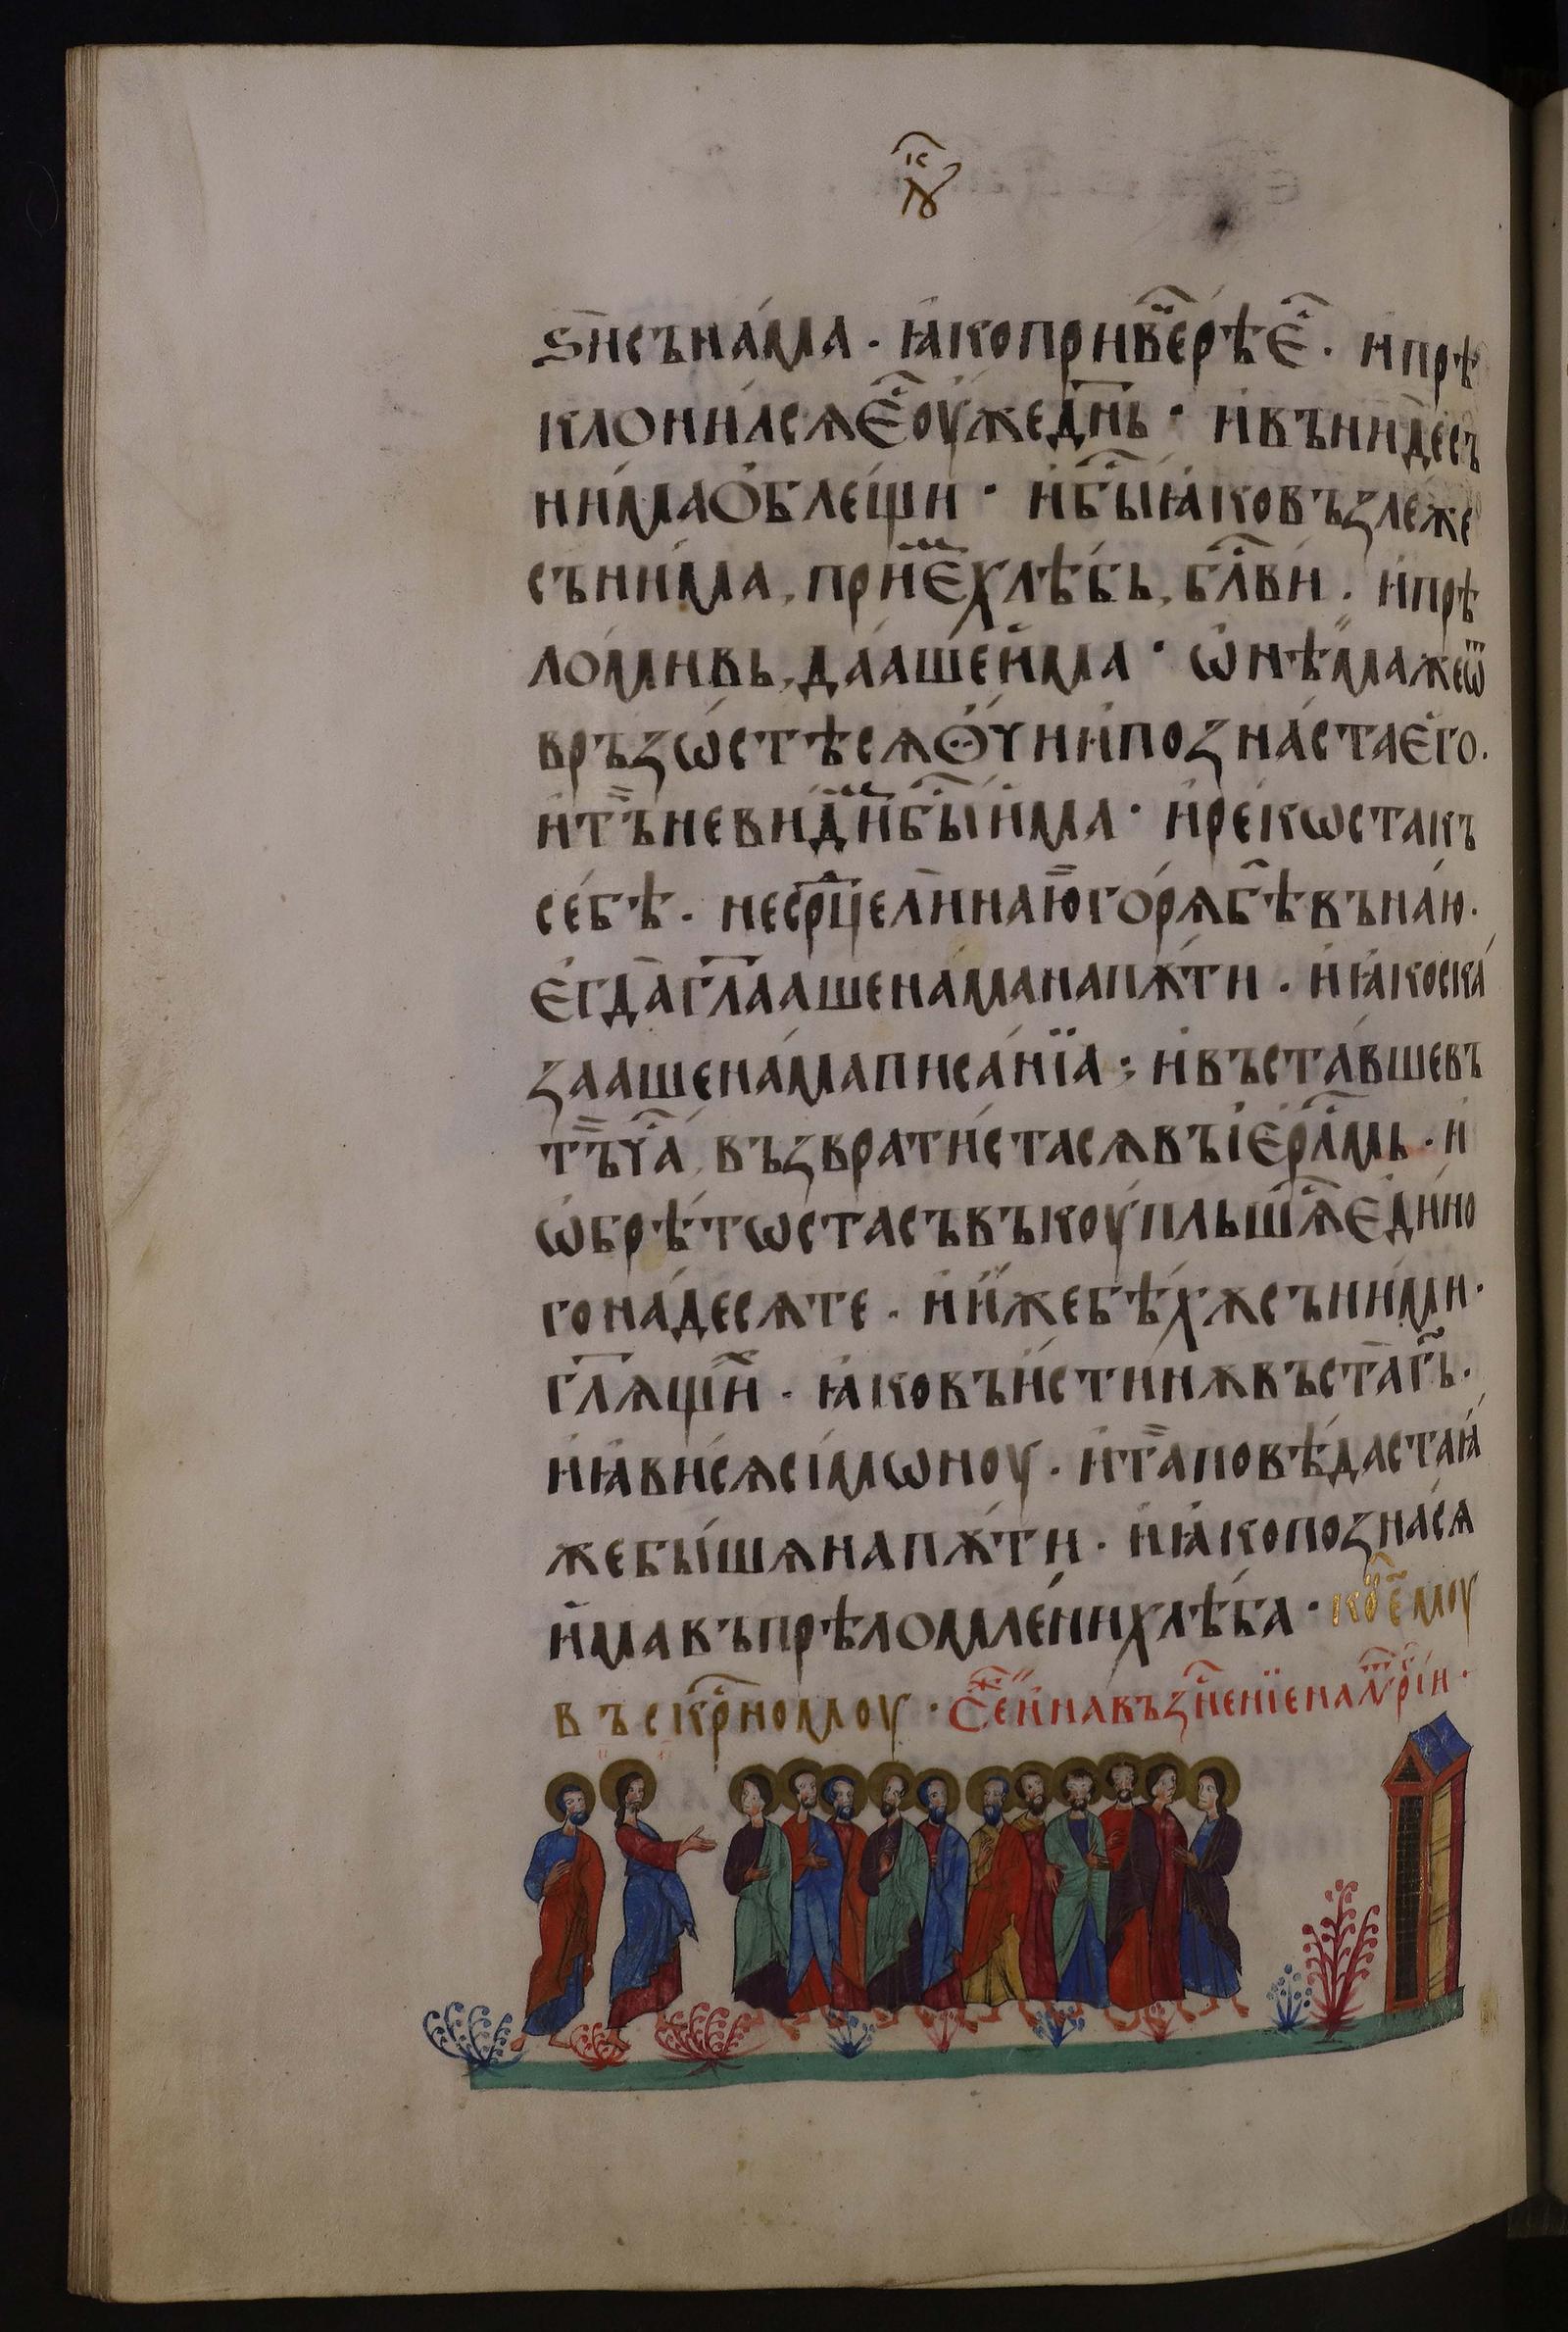 ѕи съ нама · ꙗко при ве҇рѣ е҇ · и прѣ
клонилсѧ е҇ оуже дн҃ь · и въниде съ
нима облещи · и бы҇ ꙗко възлеже
съ нима, прие҇м хлѣбь, бл҇ви · и прѣ
ломивь, даашеима · ѡнѣмаже ѿ
връзѡстѣсѧ ѻчи и познаста его ·
и тъ невиди҇м бы҇ има · и рекѡста къ
себѣ · не ср҃це ли наю горѧ бѣ въ наю ·
егда гл҃ааше нама на пѫти · и ꙗко ска
заашенама писанїа : и въставше въ
тъ ча҇, възвратистасѧ въ іер҇лмь · и
ѡбрѣтѡста съвъкоупльшѧ҇ едино
гонадесѧте · и иже бѣхѫ съ ними ·
гл҃ѧщи҇ · ꙗко въ истинѫ въста г҃ь ·
и ꙗвисѧ сімѡноу · и та повѣдаста ꙗ
же бышѧ на пѫти · и ꙗко познасѧ
има въ прѣломлени хлѣба · ко҇ е҇моу
въскр҇номоу · С҇е҇ и на възн҇енїе на ѵ҇трі҇н ·